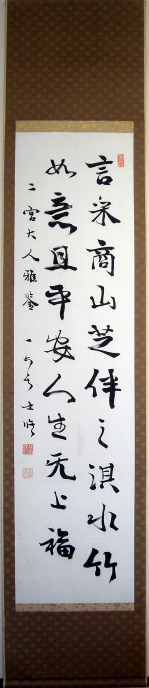 言采商山芝伴之淇水竹
如意且平安人生无上福
二宮大人雅鑒